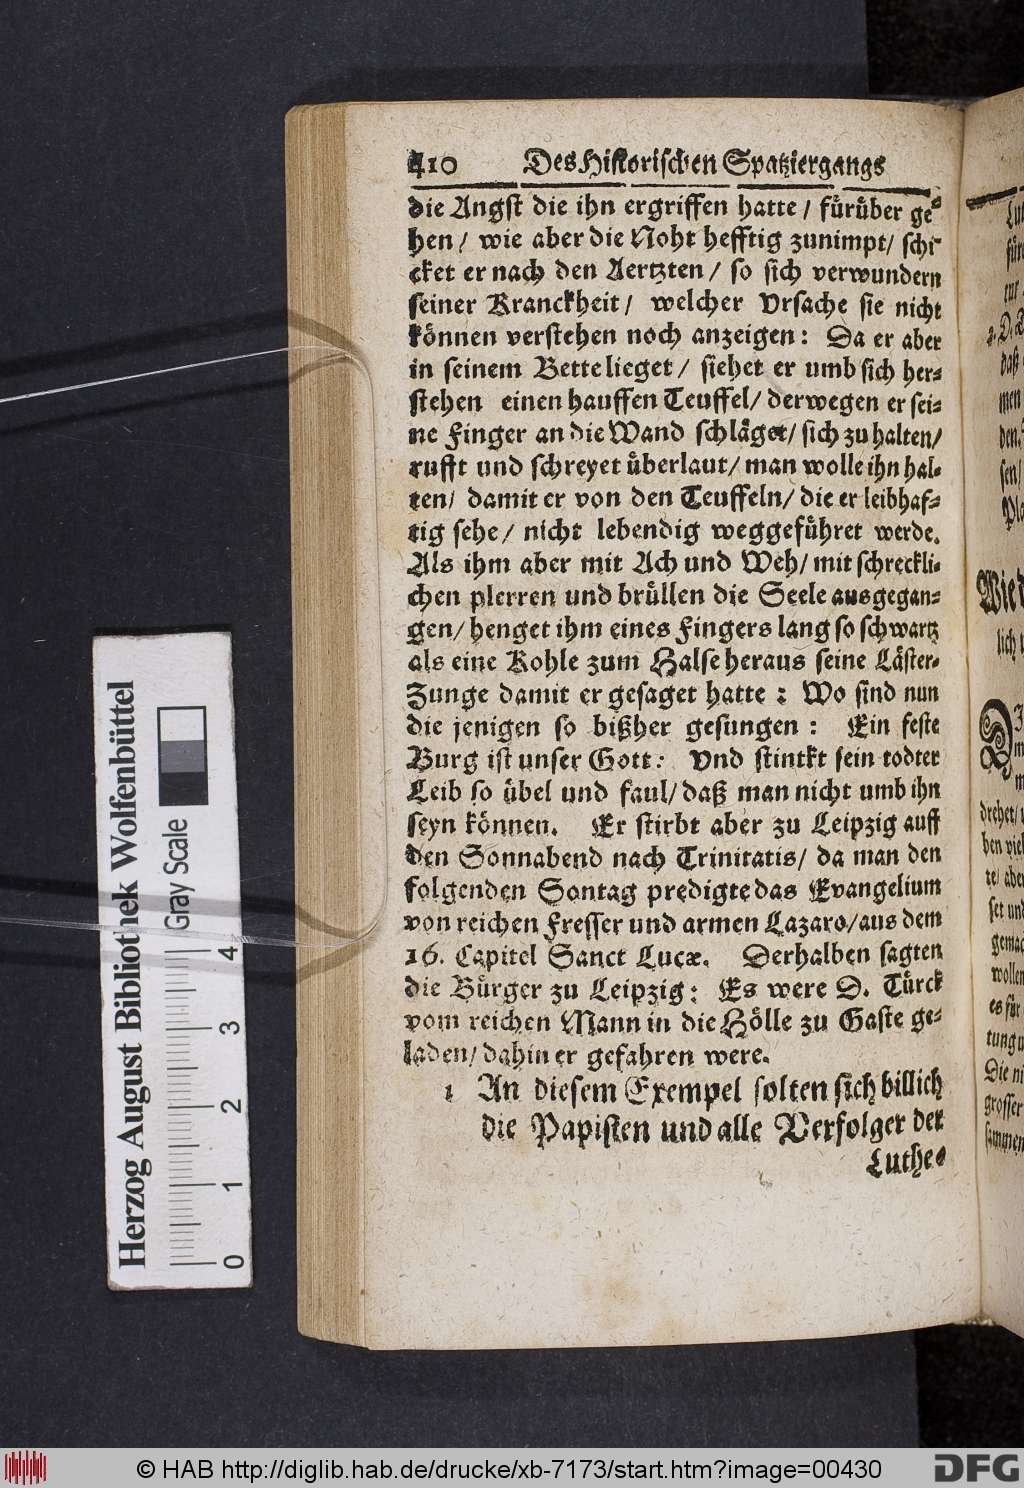 410 Des Historischen Spatziergangs
die Angst die ihn ergriffen hatte / fürüber ge-
hen / wie aber die Noht hefftig zunimpt / schi-
cket er nach den Aertzten / so sich verwundern
seiner Kranckheit / welcher Ursache sie nicht
können verstehen noch anzeigen: Da er aber
in seinem Bette lieget / siehet er umb sich her-
stehen einen hauffen Teuffel / derwegen er sei-
ne Finger an die Wand schläget / sich zu halten /
rufft und schreyet überlaut / man wolle ihn hal-
ten / damit er von den Teuffeln / die er leibhaf-
tig sehe / nicht lebendig weggeführet werde.
Als ihm aber mit Ach und Weh / mit schreckli-
chen plerren und brüllen die Seele ausgegan-
gen / henget ihm eines Fingers lang so schwartz
als eine Kohle zum Halse heraus seine Läster-
Zunge damit er gesaget hatte: Wo sind nun
die jenigen so bißher gesungen: Ein feste
Burg ist unser Gott: Und stinkt sein todter
Leib so übel und faul / daß man nicht umb ihn
seyn können. Er stirbt aber zu Leipzig auff
den Sonnabend nach Trinitatis / da man den
folgenden Sontag predigte das Evangelium
von reichen Fresser und armen Lazaro / aus dem
16. Capitel Sanct Lucæ. Derhalben sagten
die Bürger zu Leipzig: Es were D. Türck
vom reichen Mann in die Hölle zu Gaste ge-
laden / dahin er gefahren were.
1 An diesem Exempel solten sich billich
die Papisten und alle Verfolger der
Luthe-
Wie
lich
drehet /
ben viel
te / aber
set und
gemac
wollen
es für
tung u
Die ni
grosser
sammen
Herzog August Bibliothek Wolfenbüttel
Gray Scale
0 1 2 3 4
© HAB http://diglib.hab.de/drucke/xb-7173/start.htm?image=00430
DFG